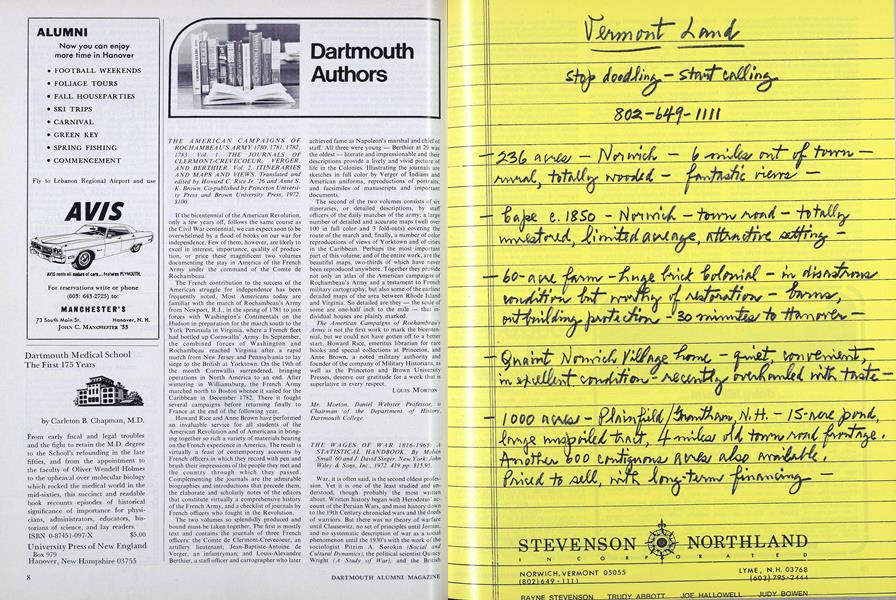 ALUMNI
Now you can enjoy
more time in Hanover
• FOOTBALL WEEKENDS
• FOLIAGE TOURS
• FALL HOUSEPARTIES
• SKI TRIPS
• CARNIVAL
• GREEN KEY
• SPRING FISHING
• COMMENCEMENT
Fly to Lebanon Regional Airport and use
AVIS
AVIS rents all makes of cars... features PLYMOUTH.
For reservations write or phone
(603: 643-2725) to:
MANCHESTER'S
73 South Main St. Hanover, N. H.
JOHN C. MANCHESTER '33
Dartmouth Medical School
The First 175 Years
by Carleton B. Chapman, M.D.
From early fiscal and legal troubles
and the fight to retain the M.D. degree
to the School's refounding in the late
fifties, and from the appointment to
the faculty of Oliver Wendell Holmes
to the upheaval over molecular biology
which rocked the medical world in the
mid-sixties, this succinct and readable
book recounts episodes of historical
significance of importance for physi-
cians, administrators, educators, his-
torians of science, and lay readers.
ISBN 0-87451-097-X $5.00
University Press of New England
Box 979
Hanover, New Hampshire 03755
8
Dartmouth
Authors
THE AMERICAN CAMPAIGNS OF
ROCHAMBEAU'S ARMY 1780, 1781, 1782,
1783. Vol. 1. THE JOURNALS OF
CLERMONT-CREVECOEUR, VERGER,
AND BERTHIER. Vol. 2. ITINERARIES
AND MAPS AND VIEWS. Translated and
edited by Howard C. Rice Jr. '26 and Anne S.
K. Brown. Co-published by Princeton Universi-
ty Press and Brown University Press, 1972.
$100.
If the bicentennial of the American Revolution,
only a few years off, follows the same course as
the Civil War centennial, we can expect soon to be
overwhelmed by a flood of books on our war for
independence. Few of them, however, are likely to
excel in interest, importance, quality of produc-
tion, or price these magnificent two volumes
documenting the stay in America of the French
Army under the command of the Comte de
Rochambeau.
The French contribution to the success of the
American struggle for independence has been
frequently noted. Most Americans today are
familiar with the march of Rochambeau's Army
from Newport, R.I., in the spring of 1781 to join
forces with Washington's Continentals on the
Hudson in preparation for the march south to the
York Peninsula in Virginia, where a French fleet
had bottled up Cornwallis' Army. In September,
the combined forces of Washington and
Rochambeau reached Virginia after a rapid
march from New Jersey and Pennsylvania to lay
siege to the British at Yorktown. On the 19th of
the month Cornwallis surrendered, bringing
operations in North America to an end. After
wintering in Williamsburg, the French Army
marched north to Boston whence it sailed for the
Caribbean in December 1782. There it fought
several campaigns before returning finally to
France at the end of the following year.
Howard Rice and Anne Brown have performed
an invaluable service for all students of the
American Revolution and of Americana in bring-
ing together so rich a variety of materials bearing
on the French experience in America. The result is
virtually a feast of contemporary accounts by
French officers in which they record with pen and
brush their impressions of the people they met and
the country through which they passed.
Complementing the journals are the admirable
biographies and introductions that precede them,
the elaborate and scholarly notes of the editors
that constitute virtually a comprehensive history
of the French Army, and a checklist of journals by
French officers who fought in the Revolution.
The two volumes so splendidly produced and
bound must be taken together. The first is mostly
text and contains the journals of three French
officers: the Comte de Clermont-Crevecoeur, an
artillery lieutenant; Jean-Baptiste-Antoine de
Verger, an infantryman; and Louis-Alexandre
Berthier, a staff officer and cartographer who later
achieved fame as Napoleon's marshal and chief of
staff. All three were young — Berthier at 29 was
the oldest — literate and impressionable and their
descriptions provide a lively and vivid picture of
life in the Colonies. Illustrating the journals are
sketches in full color by Verger of Indians and
American uniforms, reproductions of portraits,
and facsimiles of manuscripts and important
documents.
The second of the two volumes consists of six
itineraries, or detailed descriptions, by staff
officers of the daily marches of the army; a large
number of detailed and accurate maps (well over
100 in full color and 3 fold-outs) covering the
route of the march and, finally, a number of color
reproductions of views of Yorktown and of cities
in the Caribbean. Perhaps the most important
part of this volume, and of the entire work, are the
beautiful maps, two-thirds of which have never
been reproduced anywhere. Together they provide
not only an atlas of the American campaigns of
Rochambeau's Army and a testament to French
military cartography, but also some of the earliest
detailed maps of the area between Rhode Island
and Virginia. So detailed are they — the scale of
some are one-half inch to the mile — that in-
dividual houses are plainly marked.
The American Campaigns of Rochambeau's
Army is not the first work to mark the bicenten-
nial, but we could not have gotten off to a better
start. Howard Rice, emeritus librarian for rare
books and special collections at Princeton, and
Anne Brown, a noted military authority and
founder of the Company of Military Historians, as
well as the Princeton and Brown University
Presses, deserve our gratitude for a work that is
superlative in every respect.
LOUIS MORTON
Mr. Morton, Daniel Webster Professor, is
Chairman of the Department of History,
Dartmouth College.
THE WAGES OF WAR 1816-1965: A
STATISTICAL HANDBOOK. By Melvin
Small '60 and J. David Singer. New York: John
Wiley & Sons, Inc., 1972. 419 pp. $15.95.
War, it is often said, is the second oldest profes-
sion. Yet it is one of the least studied and un-
derstood, though probably the most written
about. Written history began with Herodotus' ac-
count of the Persian Wars, and most history down
to the 19th Century chronicled wars and the deeds
of warriors. But there was no theory of warfare
until Clausewitz, no set of principles until Jomini,
and no systematic description of war as a social
phenomenon until the 1930's with the work of the
sociologist Pitirim A. Sorokin (Social and
Cultural Dynamics), the political scientist Quincy
Wright (A Study of War), and the British
DARTMOUTH ALUMNI MAGAZINE
Vermont Land
stop doodling – start calling
802-649-1111
– 236 acres – Norwich – 6 miles out of town –
rural, totally wooded – fantastic views –
– Cape c. 1850 – Norwich – town road – totally
unrestored, limited acreage, attractive setting –
– 60-acre farm – huge brick Colonial – in disastrous
condition but worthy of restoration – barns,
outbuilding protection – 30 minutes to Hanover –
– Quaint Norwich Village home – quiet, convenient,
in excellent condition – recently overhauled with taste –
– 1000 acres – Plainfield/Grantham, N.H. – 15-acre pond,
large unspoiled tract, 4 miles old town road frontage.
Another 600 contiguous acres also available.
Priced to sell, with long-term financing –
STEVENSON NORTHLAND
INCORPORATED
NORWICH, VERMONT 05055
(802) 649-1111
LYME, N.H. 03768
(603) 795-2444
BAYNE STEVENSON TRUDY ABBOTT JOE HALLOWELL JUDY BOWEN